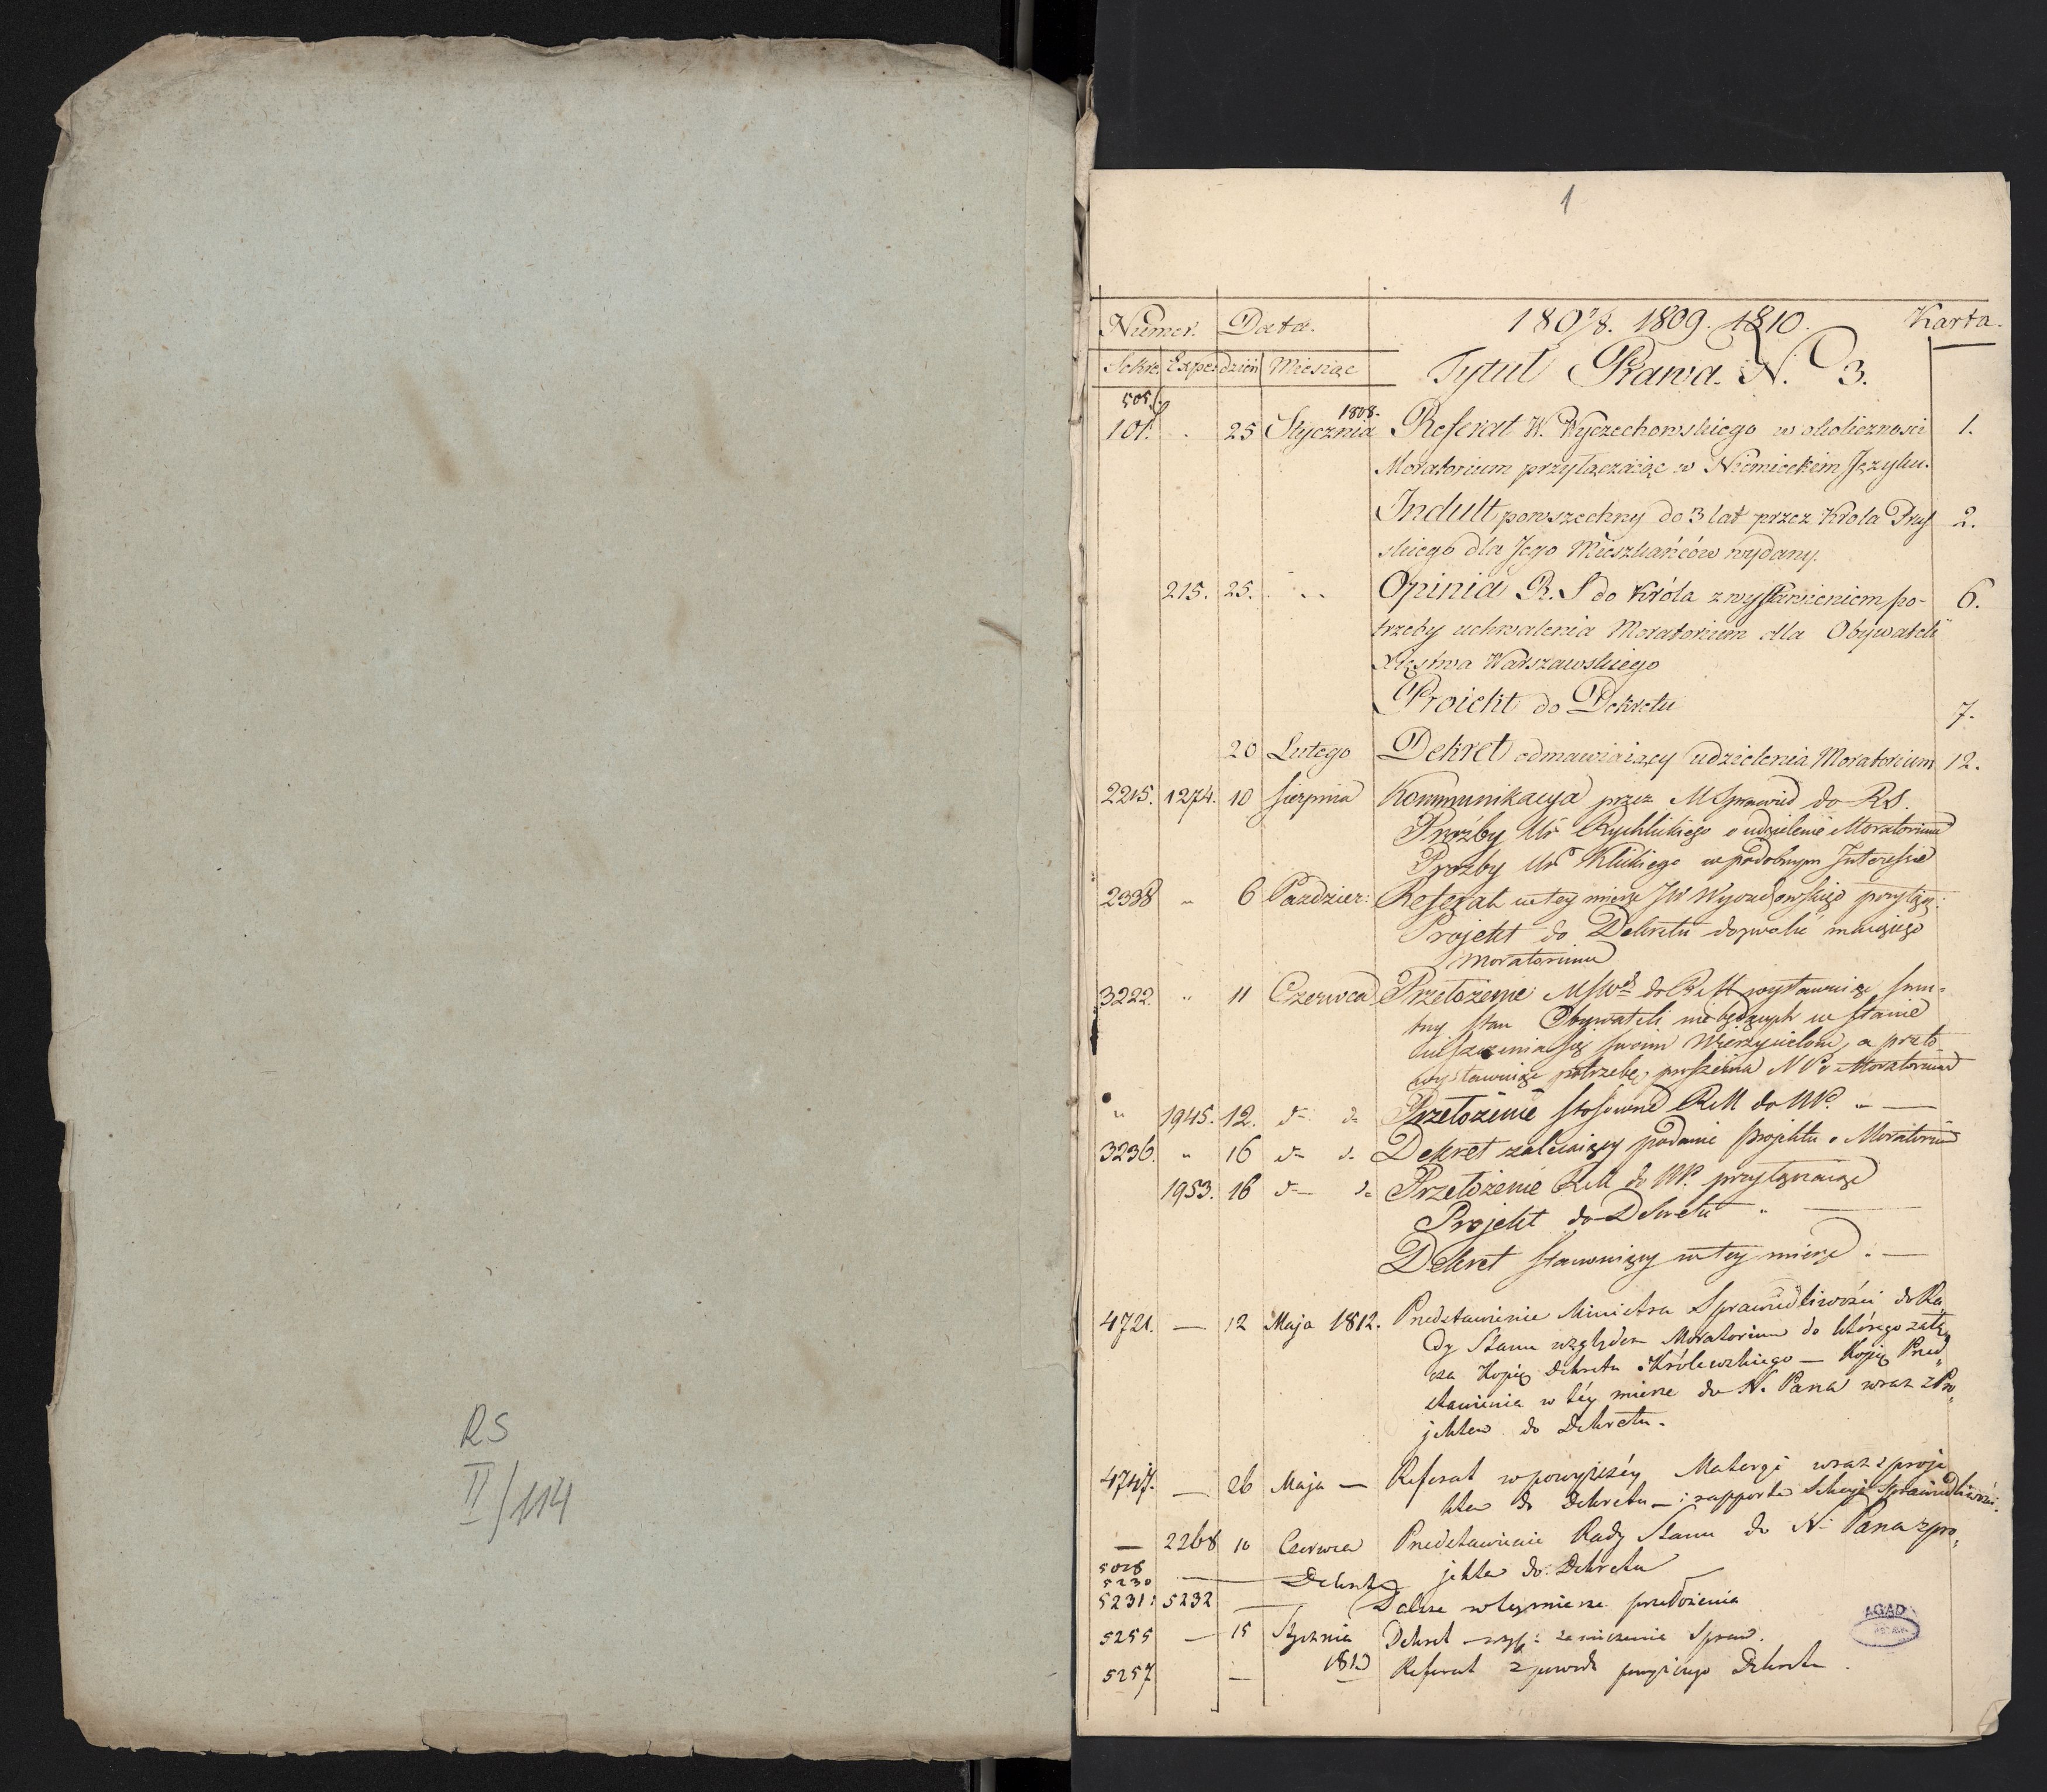 RS
II/114
1
Numer. Data. 1807/8. 1809. 1810. Karta.
Sekre. Exper dzień Miesiąc Tytuł Prawa. N. 3.
505.
101. 25 Stycznia 1808. Referat W. Wyczechowskiego w okoliczności 1.
Moratorium przyłączaiąc w Niemieckim Języku.
Indult powszechny do 3 lat przez Króla Prus 2.
skiego dla Jego Mieszkańców wydany.
215. 25. Opinia R. S do Króla z wystawieniem po- 6.
trzeby uchwalenia Moratorium dla Obywateli
Xięstwa Warszawskiego
Proiekt do Dekretu 7.
20 Lutego Dekret odmawiaiący udzielenia Moratorium 12.
2215. 1274. 10 Sierpnia Kommunikacya przez M Sprawied do RS.
Proźby Ur Rychlickiego o udzielenie Moratorium
Prozby Ur Klickiego w podobnym Interessie
2338 " 6 Pazdzier: Referat w tey mierze JW Wyczechowskiego przyłącz:
Projekt do Dekretu dozwolić maiącego
Moratorium
3222. " 11 Czerwca Przełożenie do wystawuiąc smu-
tny stan Obywateli nie będących w stanie
uiszczenia się swoim Wierzycielom, a przeto
wystawuiąc potrzebę Moratorium
" 1945. 12. d- d- Przełożenie stosowne RM do NP. " —
3236. " 16 d- d- Dekret zalecaiący podanie projektu o Moratorium
1953. 16 d- d- Przełożenie RM do NP. przyłączaiąc
Projekt do Dekretu " —
Dekret stanowiący w tey mierze " —
4721. — 12 Maja 1812. Przedstawienie Ministra Sprawiedliwości do Ra„
dy Stanu względem Moratorium do którego załą„
cza Kopię Dekretu Królewskiego — Kopię Przed„
stawienia w téy mierze do N. Pana wraz z Pro„
jektem do Dekretu.
4747. — 26 Maja — Referat w powyższéy Materyi wraz z proje
ktem do Dekretu — i rapportem Sekcyi Sprawiedliwości.
— 2268 10 Czerwca Przedstawienie Rady Stanu do N. Pana z pro„
5028 jektem do Dekretu
5230 — Dekret
5231: 5232 — Dalsze w tey mierze przełożenia
5255 — 15 Stycznia Dekret zawieszenia Spraw.
5257 — 1813 Referat z powodu powyższego Dekretu.
AGAD